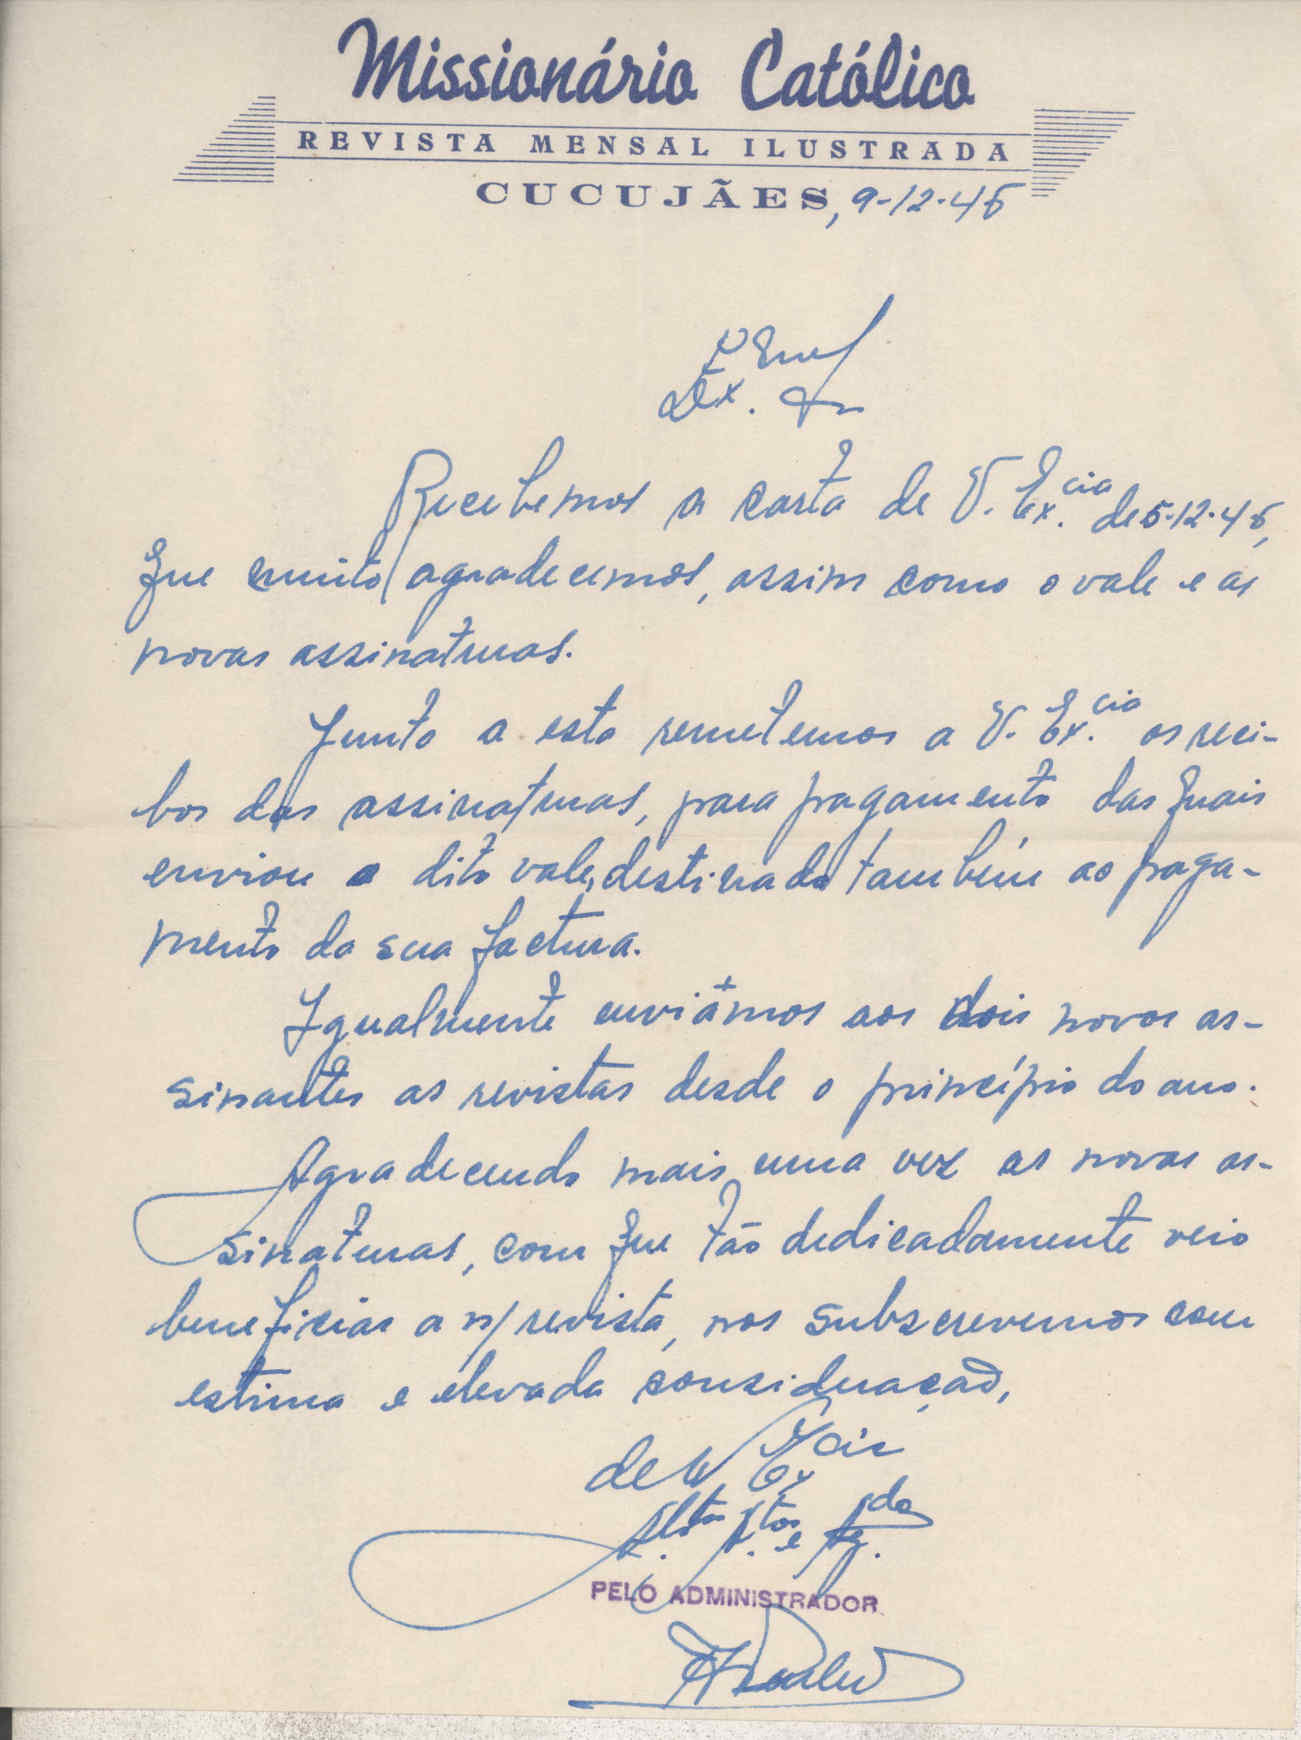 Missionário Católico
REVISTA MENSAL ILUSTRADA
CUCUJÃES, 9-12-45
Ex.
Recebemos a carta de V. Ex.cia de 5-12-45,
que muito agradecemos, assim como o vale e as
novas assinaturas.
Junto a esta remetemos a V. Ex.cia os reci-
bos das assinaturas, para pagamento das quais
enviou o dito vale, destinado também ao paga-
mento da sua factura.
Igualmente enviámos aos dois novos as-
sinantes as revistas desde o princípio do ano.
Agradecendo mais uma vez as novas as-
sinaturas, com que tão dedicadamente veio
beneficiar a n/ revista, nos subscrevemos com
estima e elevada consideração,
de V. Ex.cia
At.tos e
PELO ADMINISTRADOR